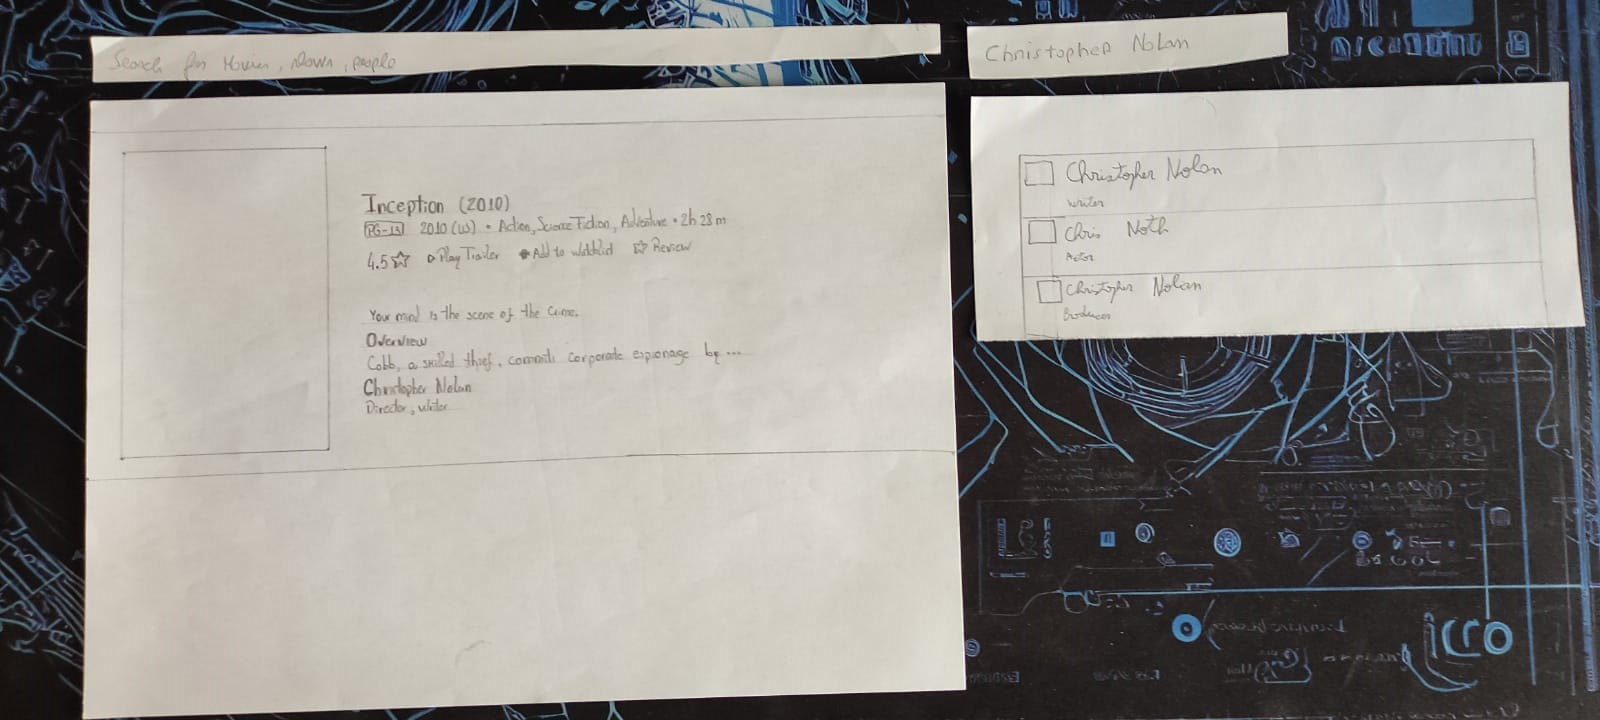 Search for Movies, shows, people
Inception (2010)
PG-13 2010 (US) • Action, Science Fiction, Adventure • 2h 28m
4.5 Play Trailer Add to watchlist Review
Your mind is the scene of the crime.
Overview
Cobb, a skilled thief, commits corporate espionage by ...
Christopher Nolan
Director, writer
Christopher Nolan
Christopher Nolan
writer
Chris Noth
Actor
Christopher Nolan
Producer